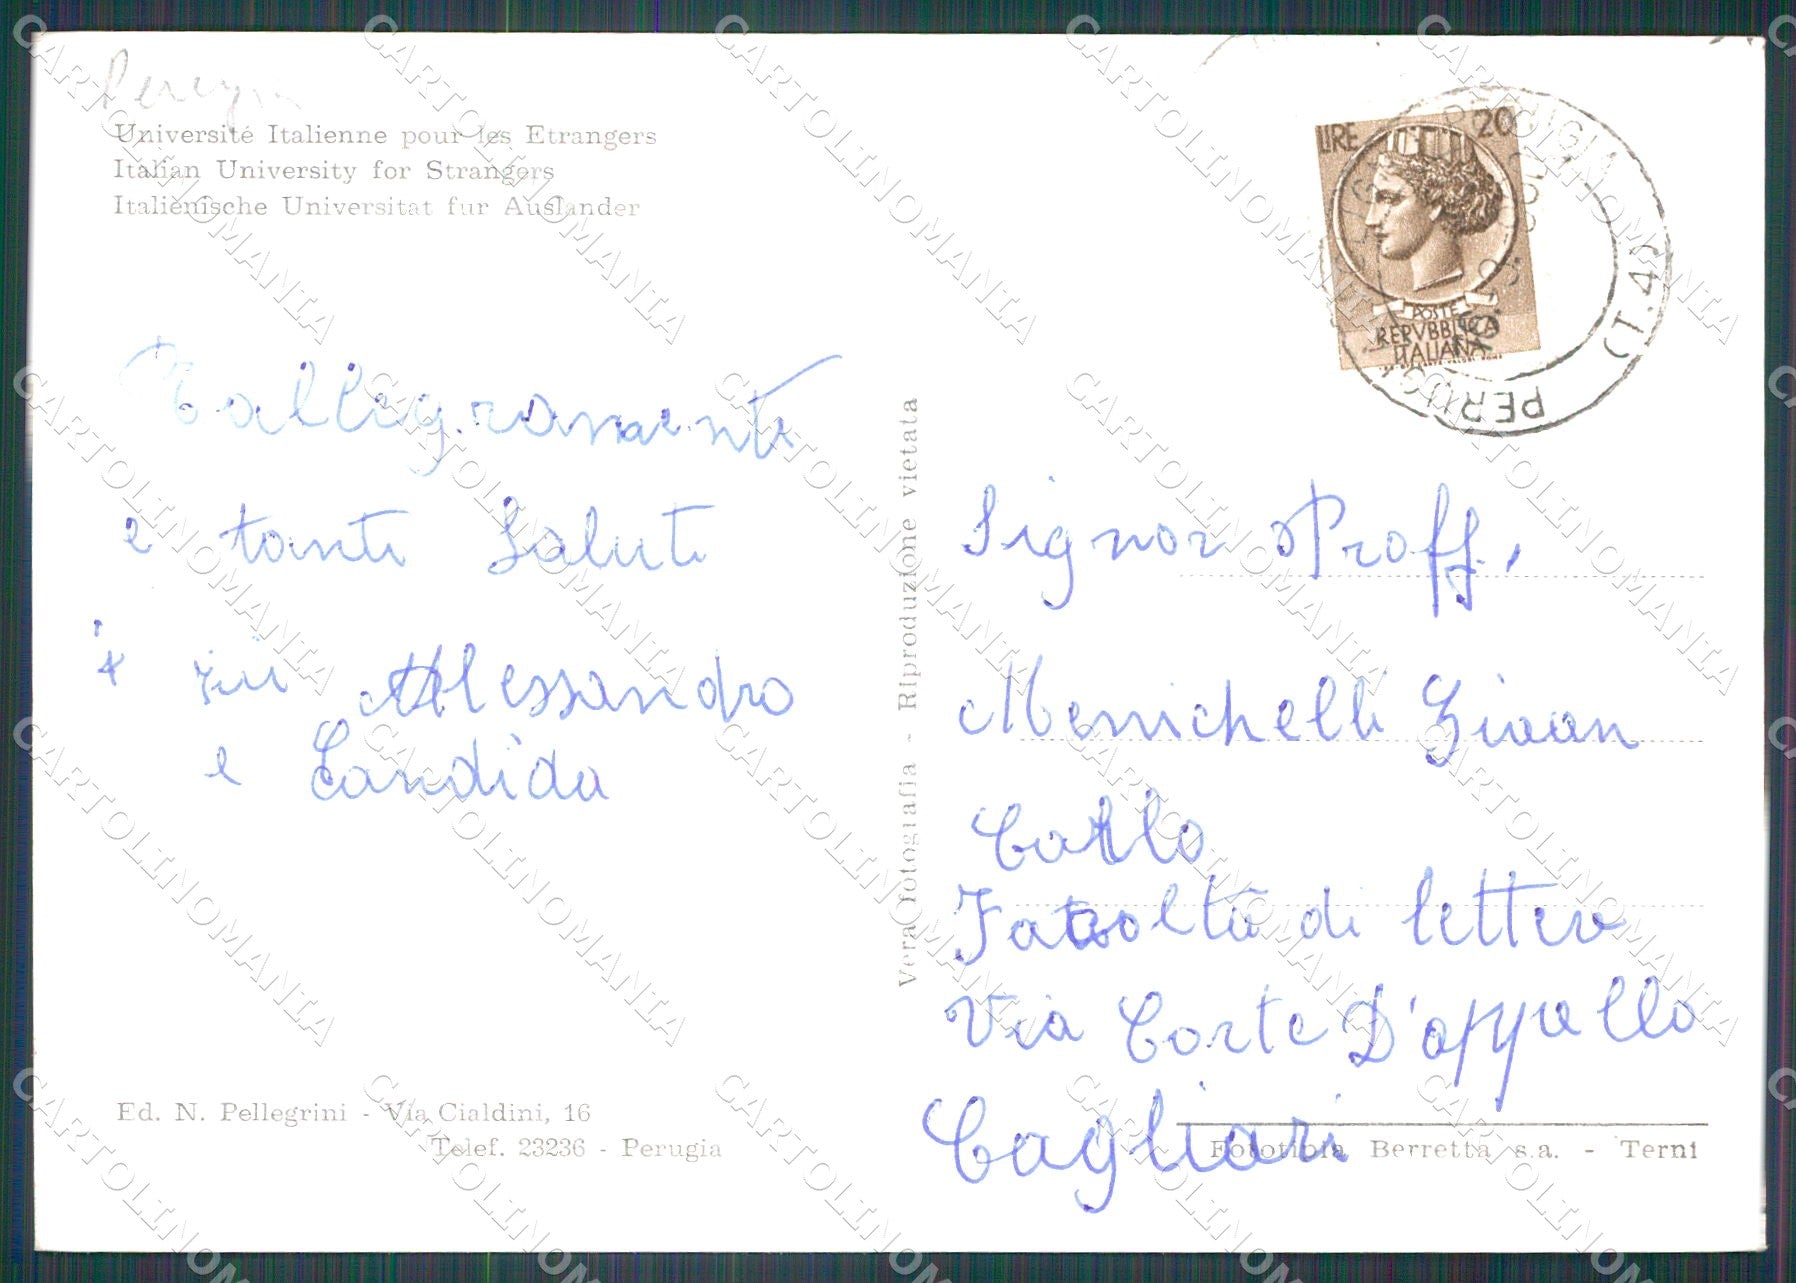 Perugia
Université Italienne pour les Etrangers
Italian University for Strangers
Italienische Universitat fur Auslander
LIRE 20
POSTE
REPVBBLICA
ITALIANA
PERUGIA
PERUGIA (1.4)
Rallegramenti
e tanti saluti
zii Alessandro
e Candida
Vera fotografia - Riproduzione vietata
Signor Proff,
Menichelli Giovan
Carlo
Facoltà di lettere
Via Corte D'appello
Cagliari
Ed. N. Pellegrini - Via Cialdini, 16
Telef. 23236 - Perugia
Fototipia Berretta s.a. - Terni
CARTOLINOMANIA